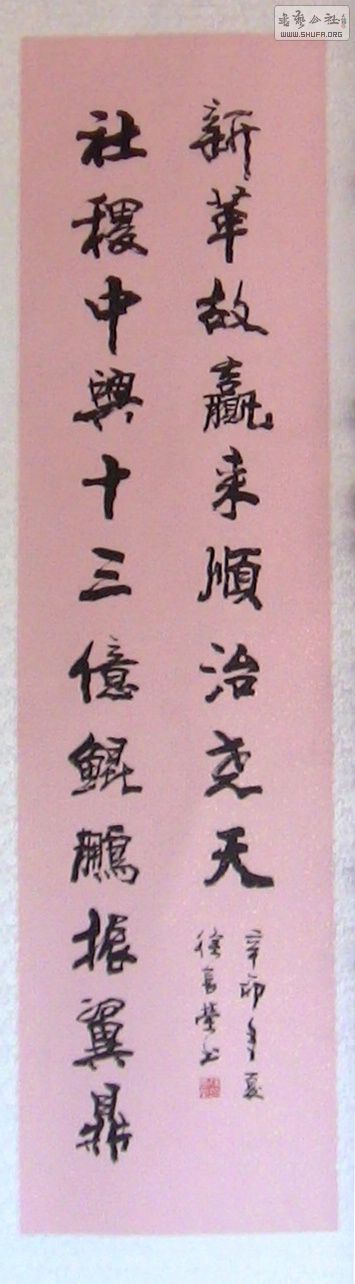 社稷中興十三億鯤鵬振翼鼎
新革故贏來順治堯天
辛卯年夏
徐榮書
書藝公社
WWW.SHUFA.ORG